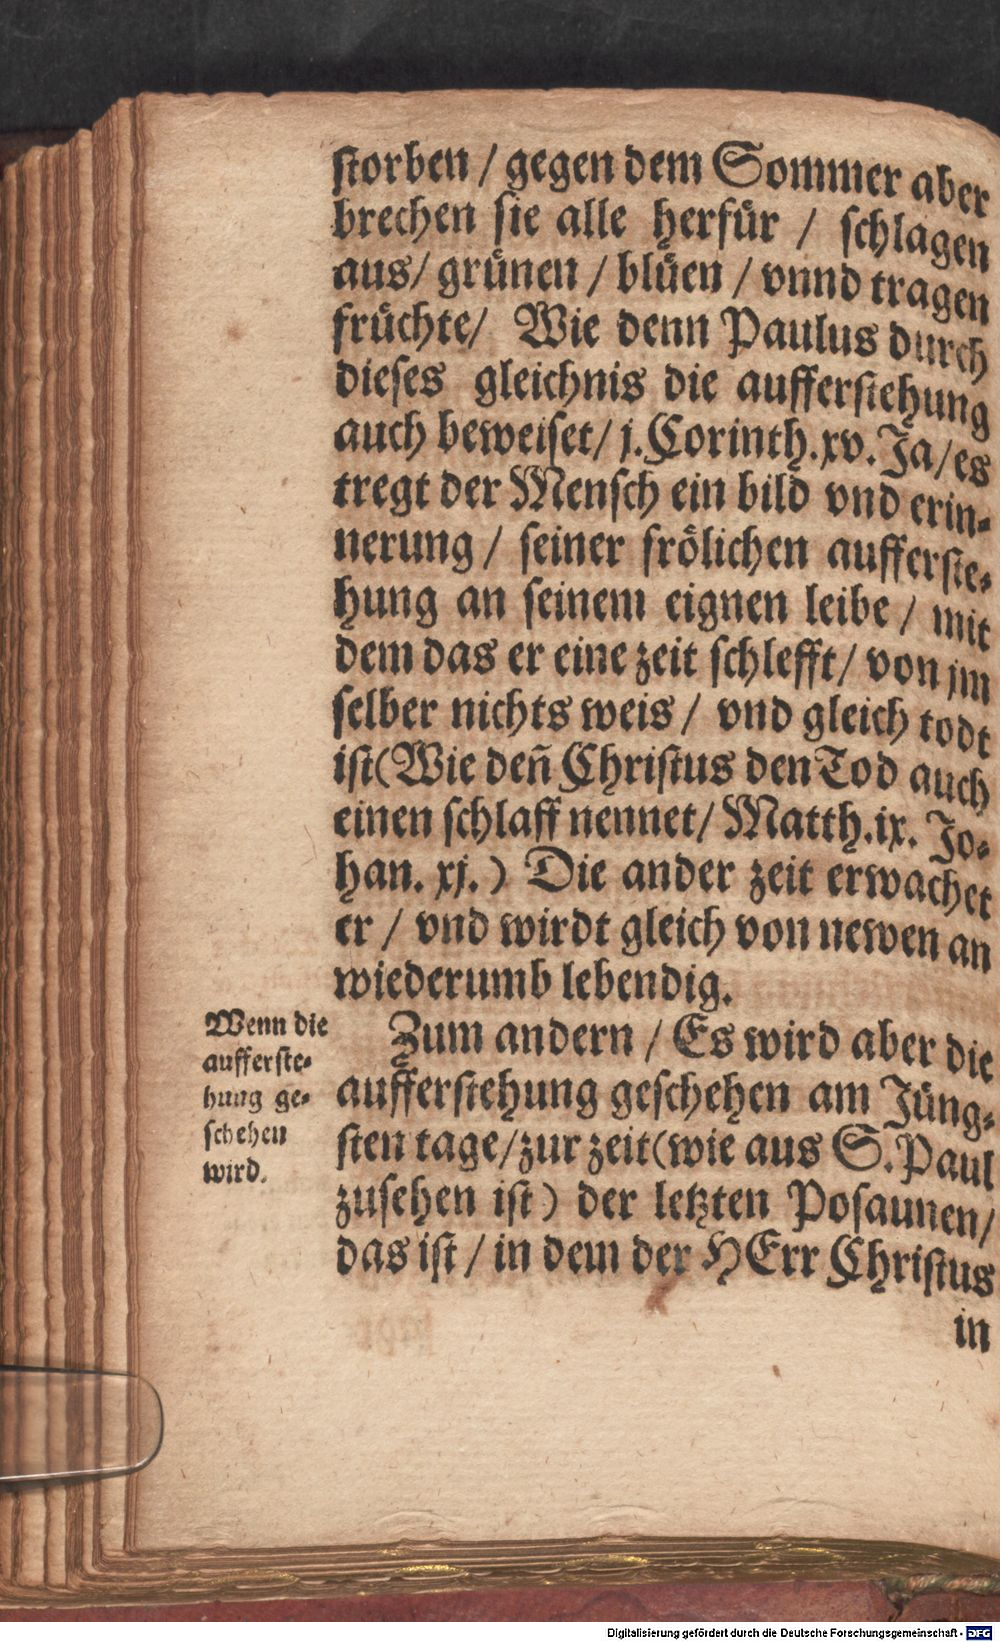 storben / gegen dem Sommer aber
brechen sie alle herfür / schlagen
aus/ grünen / blüen / vnnd tragen
früchte/ Wie denn Paulus durch
dieses gleichnis die aufferstehung
auch beweiset/ j. Corinth. xv. Ja/es
tregt der Mensch ein bild vnd erin-
nerung / seiner frölichen aufferste-
hung an seinem eignen leibe / mit
dem das er eine zeit schlefft/ von jm
selber nichts weis / vnd gleich todt
ist(Wie deñ Christus den Tod auch
einen schlaff nennet/ Matth. ix. Jo-
han. xj.) Die ander zeit erwachet
er / vnd wirdt gleich von newen an
wiederumb lebendig.
Wenn die
aufferste-
hung ge-
schehen
wird.
Zum andern / Es wird aber die
aufferstehung geschehen am Jüng-
sten tage/zur zeit(wie aus S. Paul
zusehen ist) der letzten Posaunen/
das ist / in dem der HErr Christus
in
Digitalisierung gefördert durch die Deutsche Forschungsgemeinschaft - DFG